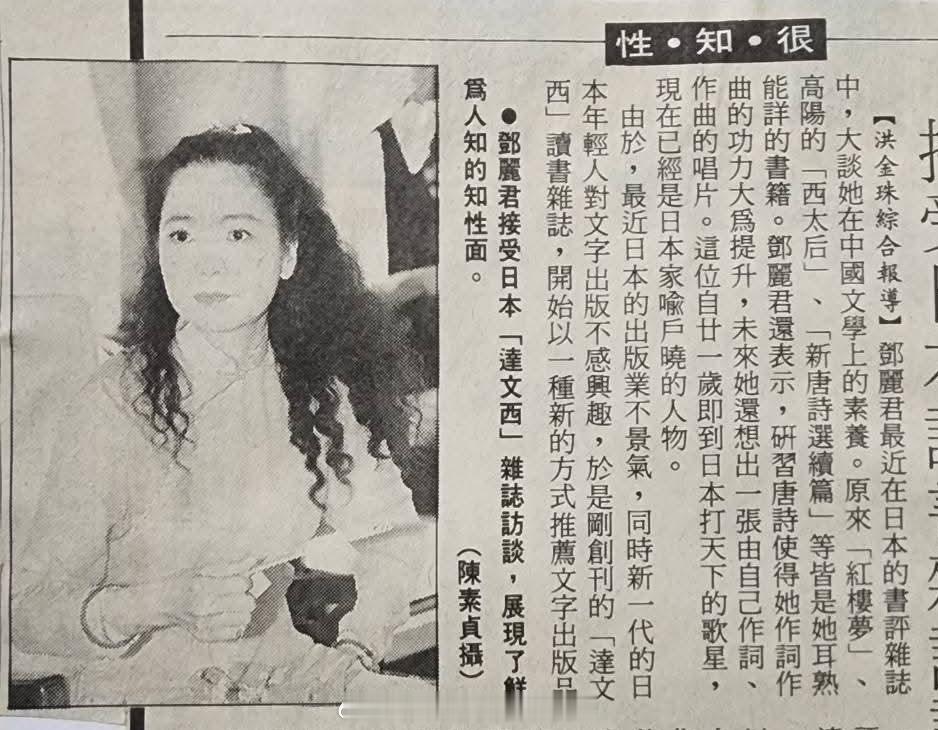 很・知・性
【洪金珠綜合報導】鄧麗君最近在日本的書評雜誌
中，大談她在中國文學上的素養。原來「紅樓夢」、
高陽的「西太后」、「新唐詩選續篇」等皆是她耳熟
能詳的書籍。鄧麗君還表示，研習唐詩使得她作詞作
曲的功力大爲提升，未來她還想出一張由自己作詞、
作曲的唱片。這位自廿一歲即到日本打天下的歌星，
現在已經是日本家喩戶曉的人物。
由於，最近日本的出版業不景氣，同時新一代的日
本年輕人對文字出版不感興趣，於是剛創刊的「達文
西」讀書雜誌，開始以一種新的方式推薦文字出版品
●鄧麗君接受日本「達文西」雜誌訪談，展現了鮮
爲人知的知性面。
（陳素貞攝）